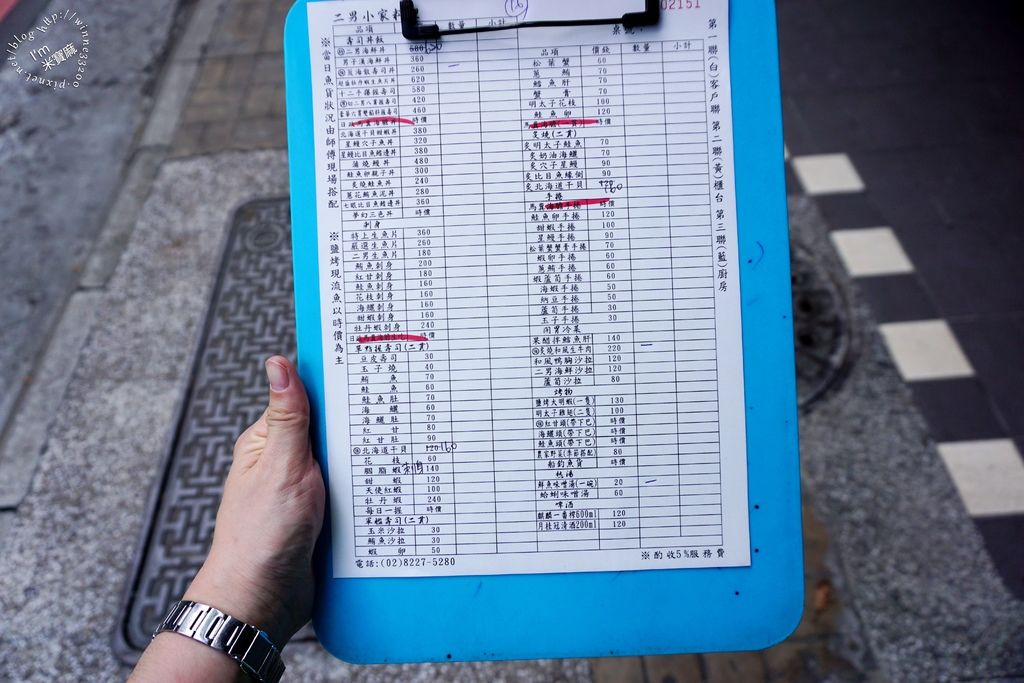 二男小家
02151
品項 數量 小計
壽司丼飯
二男海鮮丼 680
男子漢海鮮丼 360
260
620
十二手握壽司 580
420
460
時價
北海道干貝甜蝦丼 380
星鰻穴子魚丼 320
星鰻比目魚鰭邊丼 380
蒲燒鰻丼 480
鮭魚卵親子丼 300
炙燒鮭魚丼 240
蔥花鮪魚泥丼 280
七眼比目魚鰭邊丼 360
夢幻三色丼 時價
刺身
特上生魚片 360
嚴選生魚片 260
二男生魚片 180
鮪魚刺身 200
紅甘刺身 180
鮭魚刺身 160
花枝刺身 160
海鱺刺身 160
甜蝦刺身 160
牡丹蝦刺身 240
時價
單點握壽司(二貫)
豆皮壽司 30
玉子燒 40
鮪魚 70
鮭魚 60
鮭魚肚 70
海鱺 60
海鱺肚 70
紅甘 80
紅甘肚 90
北海道干貝 120 160
花枝 60
胭脂蝦 刺身 140
甜蝦 120
天使紅蝦 100
牡丹蝦 240
每日一握 時價
軍艦壽司(二貫)
玉米沙拉 30
鮪魚沙拉 30
蝦卵 50
電話:(02)8227-5280
品項 價錢 數量 小計
松葉蟹 60
蔥鮪 70
鱈魚肝 70
蟹膏 70
明太子花枝 100
鮭魚卵 120
時價
炙燒(二貫)
炙明太子鮭魚 70
炙奶油海鱺 70
炙穴子星鰻 90
炙比目魚緣側 90
炙北海道干貝 120 160
手捲
時價
鮭魚卵手捲 120
甜蝦手捲 100
星鰻手捲 90
松葉蟹蟹膏手捲 70
蝦卵手捲 60
蔥鮪手捲 60
蝦蘆筍手捲 60
海蝦手捲 50
納豆手捲 50
蘆筍手捲 30
玉子手捲 30
開胃冷菜
果醋拌鱈魚肝 140
炙燒和風生牛肉 220
和風鴨胸沙拉 120
二男海鮮沙拉 120
蘆筍沙拉 80
烤物
鹽烤大明蝦(一隻) 130
明太子雞翅(二隻) 100
紅甘頭(帶下巴) 時價
海鱺頭(帶下巴) 時價
鮭魚頭(帶下巴) 時價
農家野菜(季節搭配) 80
船釣魚貨 時價
熱湯
鮮魚味噌湯(一碗) 20
蛤蜊味噌湯 60
啤酒
麒麟一番榨600ml 120
月桂冠清酒200ml 120
※酌收5%服務費
※當日魚貨狀況由師傅現場搭配
※鹽烤現流魚以時價為主
第一聯(白)客戶聯 第二聯(黃)櫃台 第三聯(藍)廚房
I'm 米寶麻
blog http://winnie33200.pixnet.net/blog